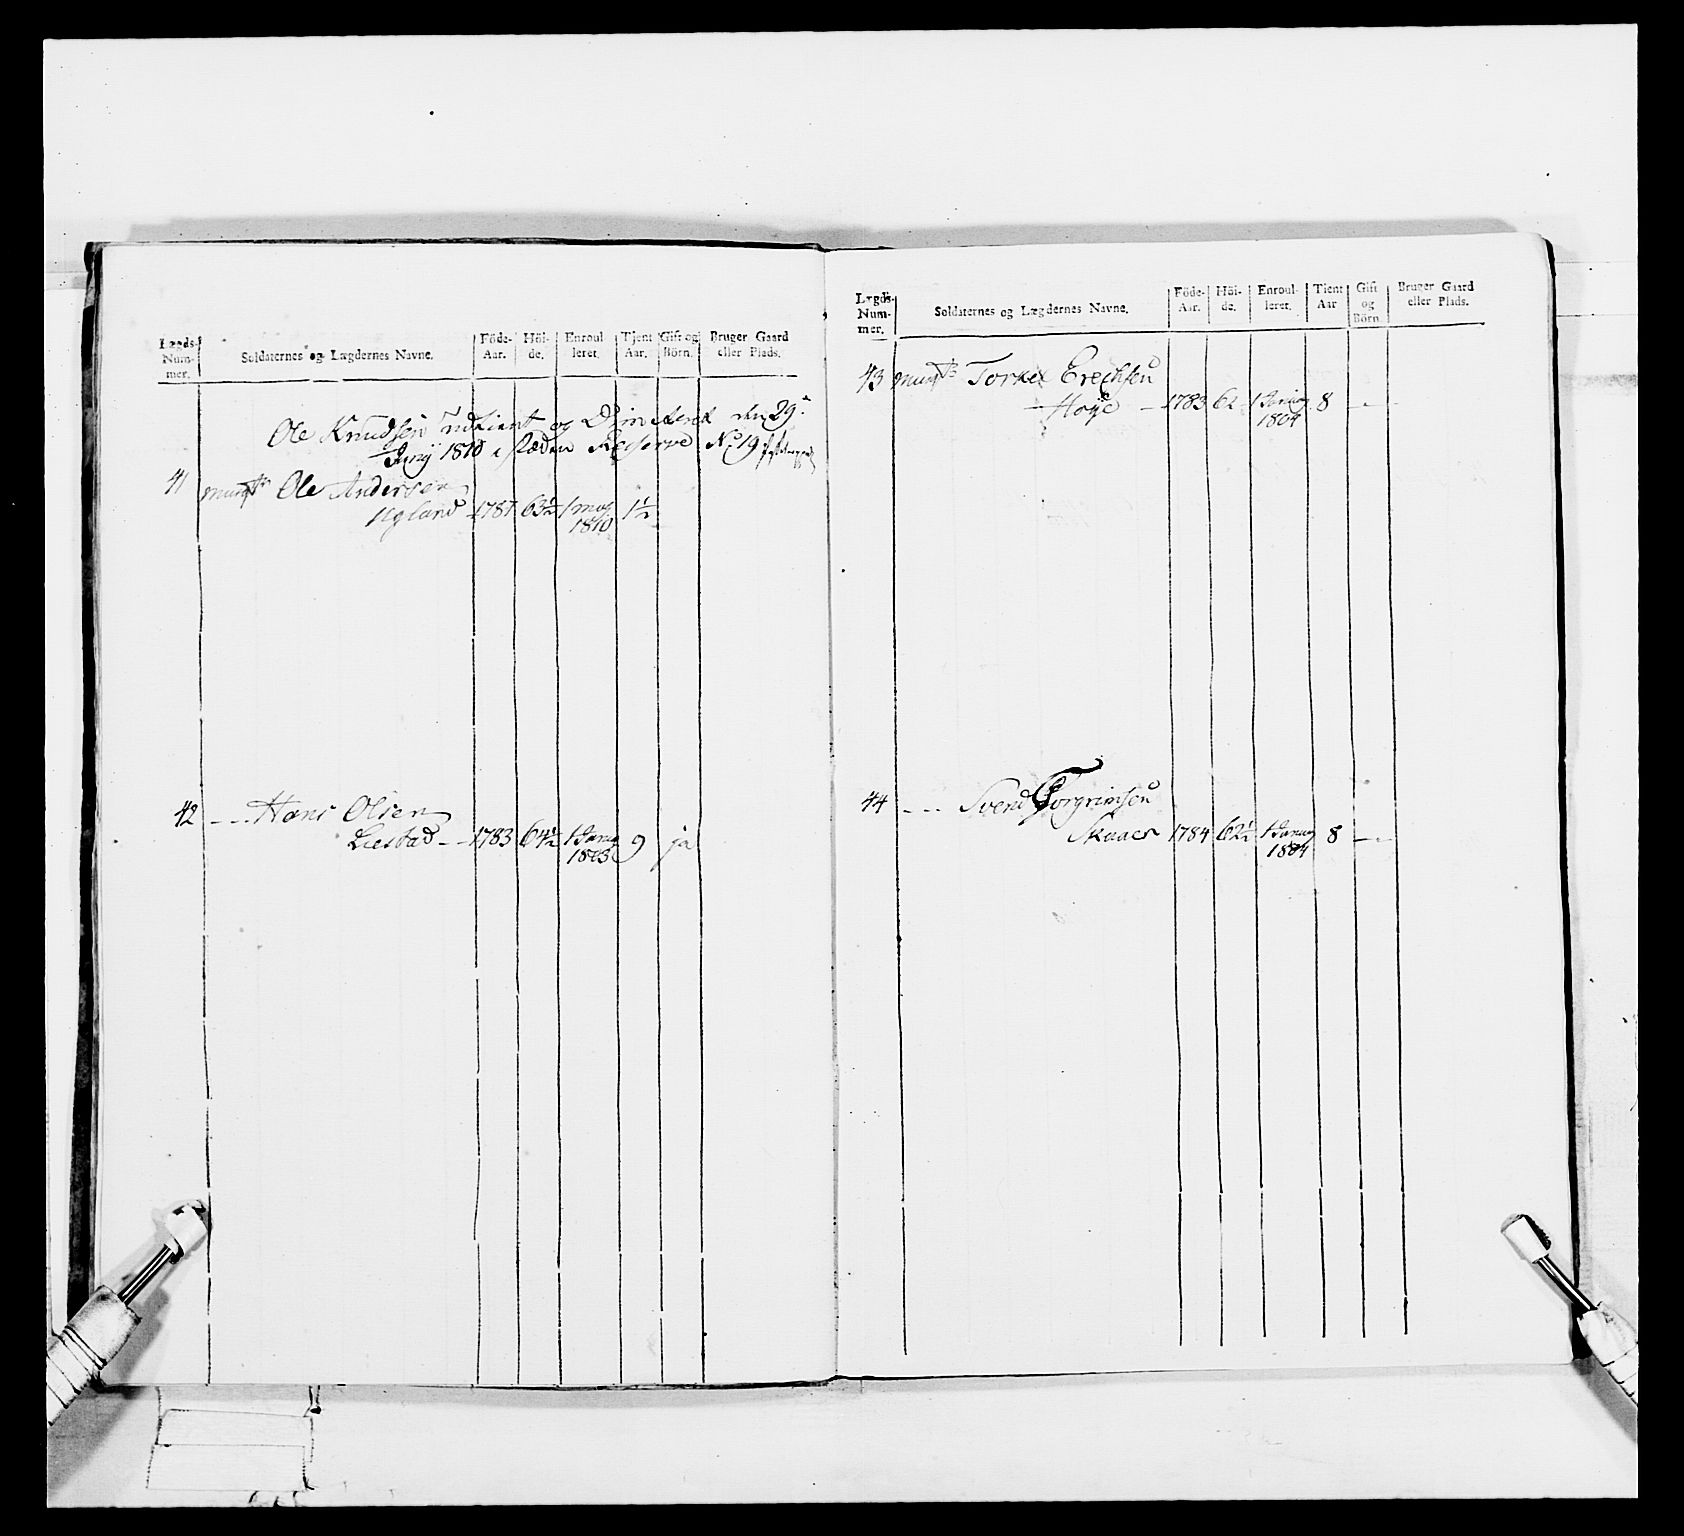 Lægds-Num-mer. Soldaternes og Lægdernes Navne. Föde-Aar. Höi-de. Enroul leret. Tjent Aar. Gift og Börn. Bruger Gaard eller Plads.
Ole Knudsen udtient og Dimiteret den 29
Juny 1810 i stæden Reserve No 19
41 Ole Andersen
Ugland 1787 63½ 1 may 1810 1½
42 - - - Hans Olsen
Liestad - - 1783 64½ 1 Janu 1803 9 ja
Lægds-Num-mer. Soldaternes og Lægdernes Navne. Föde-Aar. Höi-de. Enroul-leret. Tient Aar Gift og Börn. Bruger Gaard eller Plads.
43 Torkel Erechsen
Hoÿe - 1783 62 1 Janu 1804 8 - -
44 - - - Svend Torgrimsen
Skaaer 1784 62½ 1 Janu 1804 8 - -